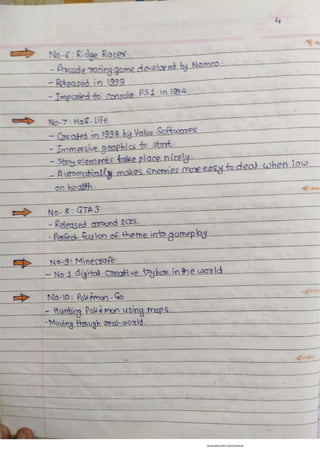 4
No-6: Ridge Racer
- Arcade racing game developed by Namco.
- Released in 1993
- Imported to console PS1 in 1994
No-7: Half-Life
- Created in 1998 by Valve Softwares
- Immersive graphics to start
- Story elements take place nicely.
- Automatically makes enemies more easy to deal when low
on health.
No-8: GTA 3
- Released around 2001.
- Perfect fusion of theme into gameplay.
No-9: Minecraft
- No.1 digital creative toybox in the world
No-10: Pokémon-Go
- Hunting Pokémon using maps
- Moving through real-world.
Scanned with CamScanner